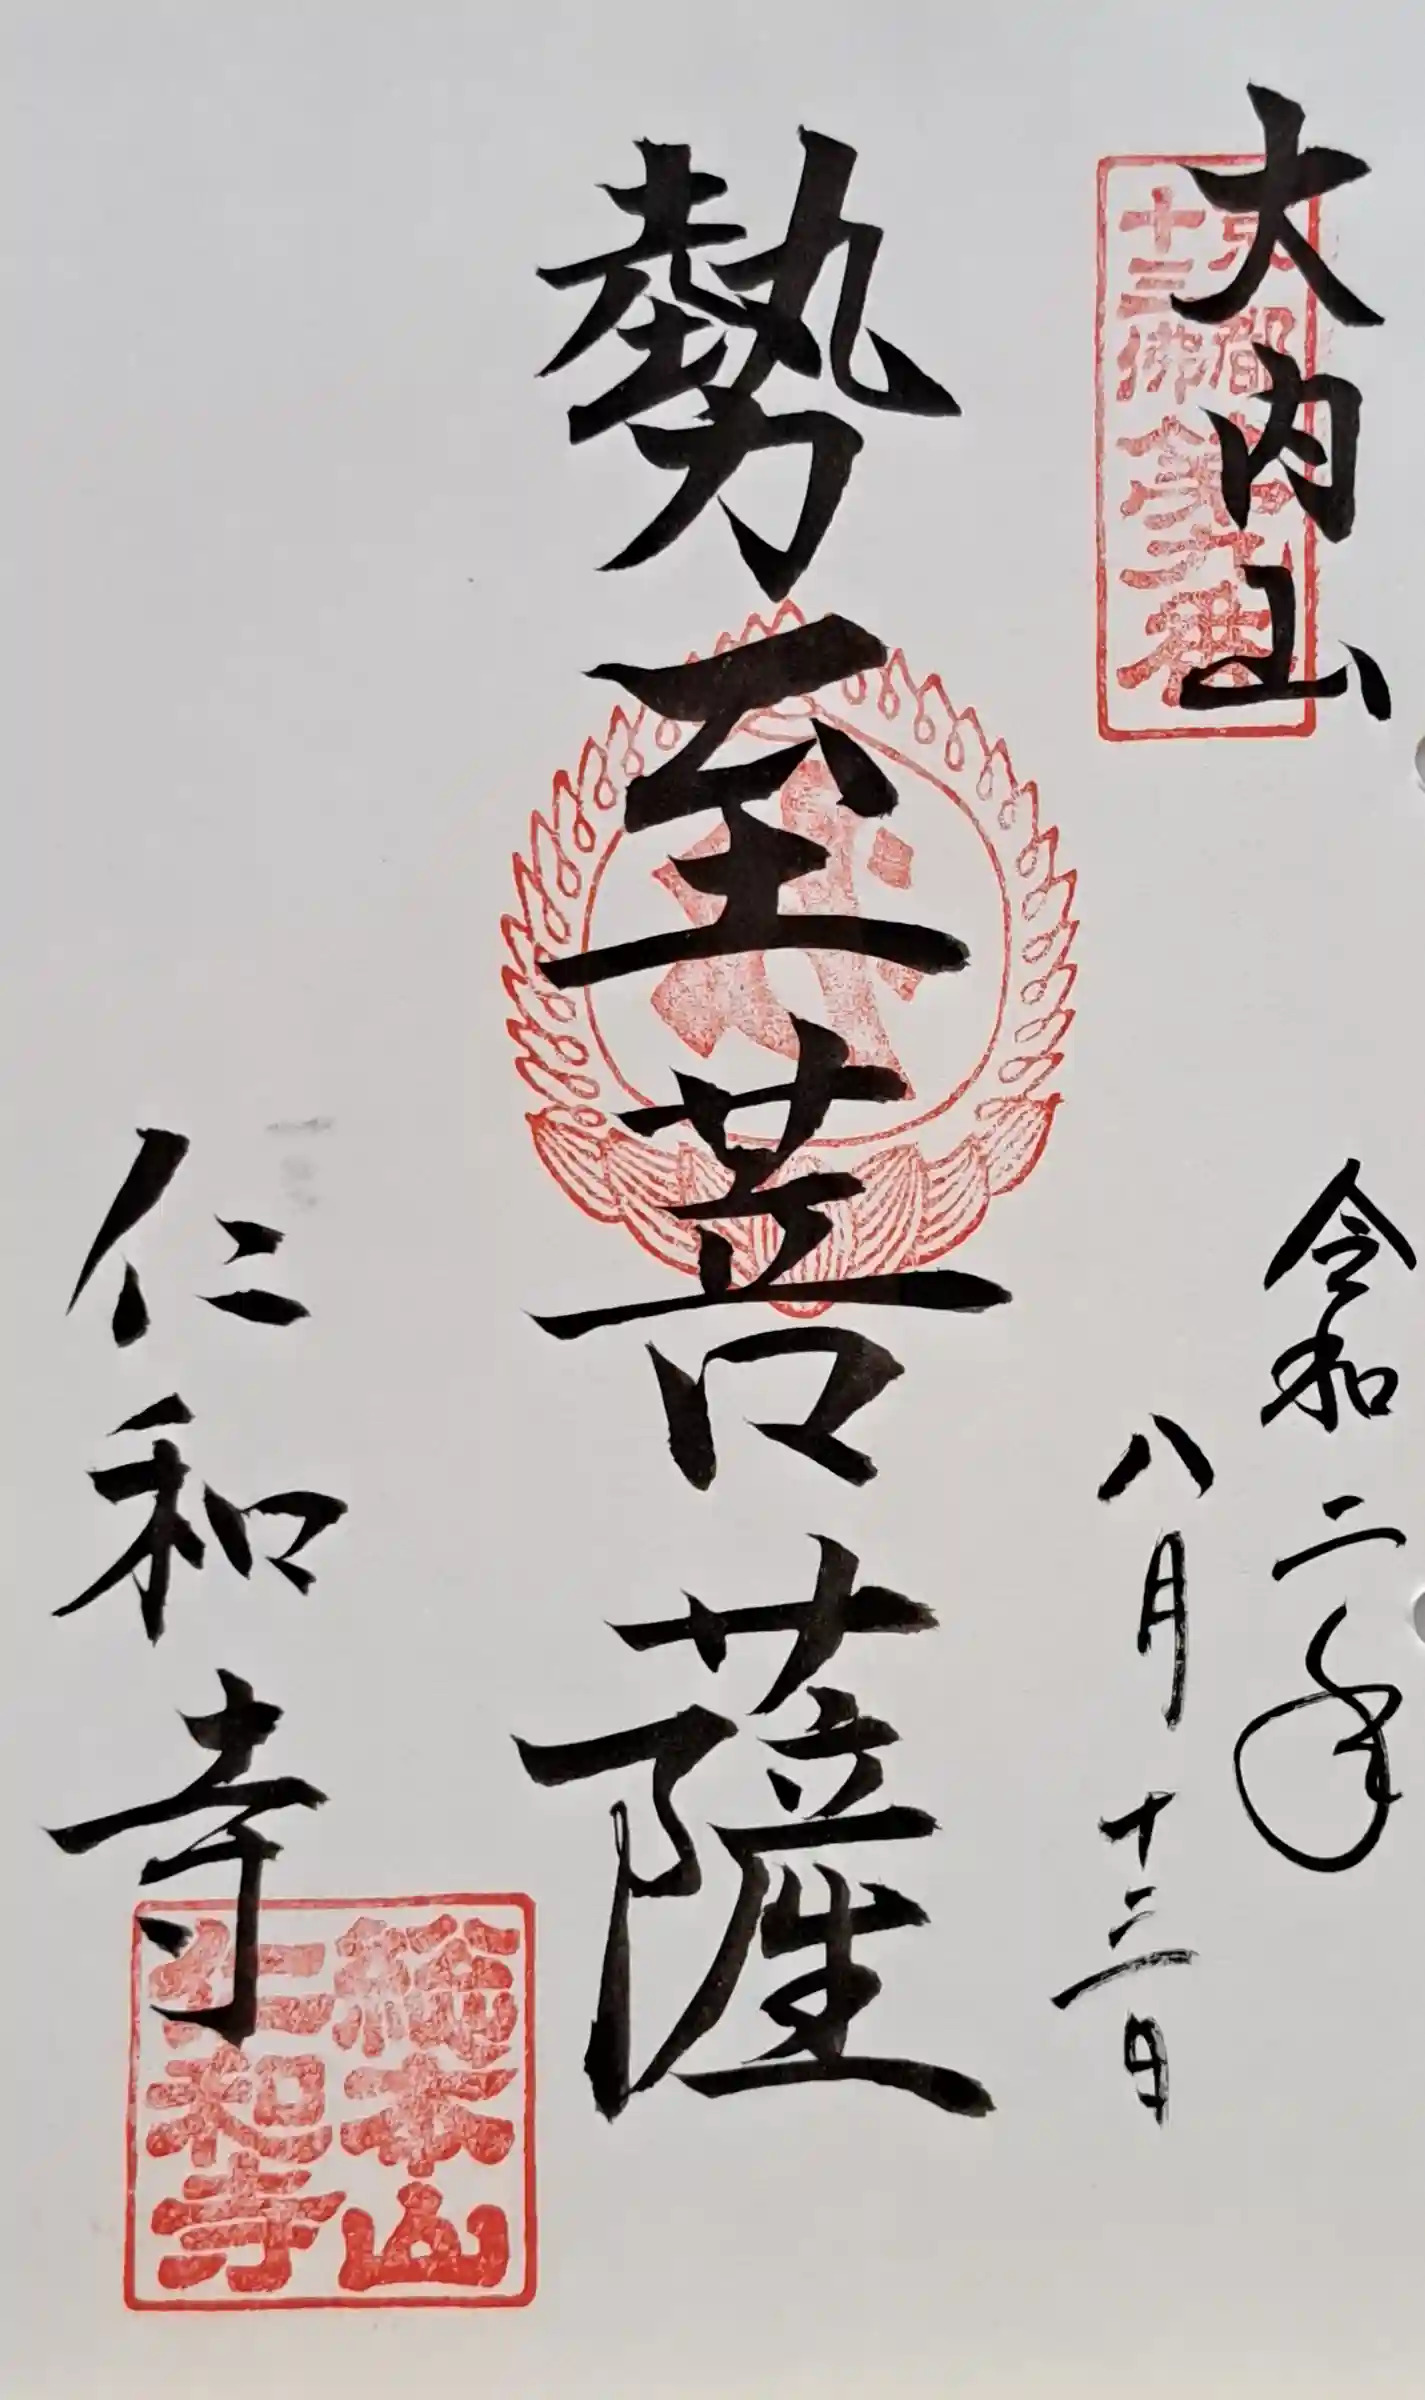 大内山
令和二年
八月十三日
勢至菩薩
仁和寺
京都
十三佛
総本山
仁和寺